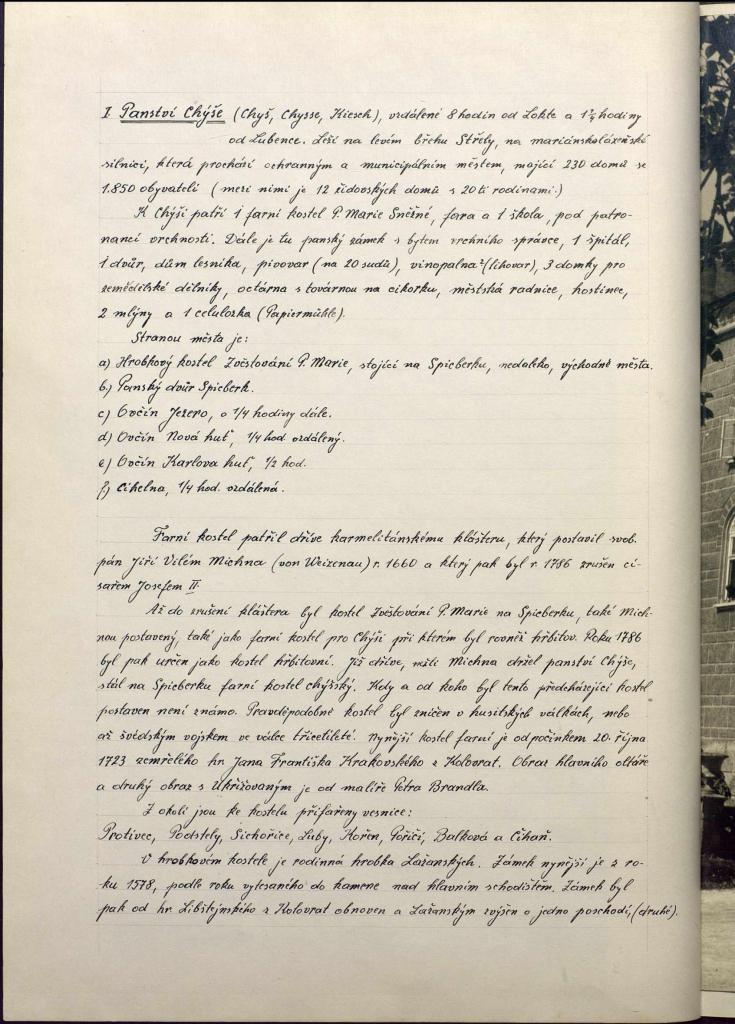 I. Panství Chýše (Chyš, Chysse, Kiesch), vzdálené 8 hodin od Lokte a 1 3/4 hodiny
od Lubence. Leží na levém břehu Střely, na mariánskolázeňské
silnici, která prochází ochranným a municipálním městem, mající 230 domů se
1.850 obyvateli (mezi nimi je 12 židovských domů s 20ti rodinami.)
K Chýši patří 1 farní kostel P. Marie Sněžné, fara a 1 škola, pod patro-
nancí vrchnosti. Dále je tu panský zámek s bytem vrchního správce, 1 špitál,
1 dvůr, dům lesníka, pivovar (na 20 sudů), vinopalna (lihovar), 3 domky pro
zemědělské dělníky, octárna s továrnou na cikorku, městská radnice, hostinec,
2 mlýny a 1 celulozka (Papiermühle).
Stranou města je:
a) Hrobkový kostel Zvěstování P. Marie, stojící na Spicberku, nedaleko, východně města.
b) Panský dvůr Spicberk.
c) Ovčín Jezero, o 1/4 hodiny dále.
d) Ovčín Nová huť, 1/4 hod. vzdálený.
e) Ovčín Karlova huť, 1/2 hod.
f) Cihelna, 1/4 hod. vzdálená.
Farní kostel patřil dříve karmelitánskému klášteru, který postavil svob.
pán Jiří Vilém Michna (von Weizenau) r. 1660 a který pak byl r. 1786 zrušen cí-
sařem Josefem II.
Až do zrušení kláštera byl kostel Zvěstování P. Marie na Spicberku, také Mich-
nou postavený, také jako farní kostel pro Chýši při kterém byl rovněž hřbitov. Roku 1786
byl pak určen jako kostel hřbitovní. Již dříve, nežli Michna držel panství Chýše,
stál na Spicberku farní kostel chýšský. Kdy a od koho byl tento předcházející kostel
postaven není známo. Pravděpodobně kostel byl zničen v husitských válkách, nebo
až švédským vojskem ve válce třicetileté. Nynější kostel farní je odpočinkem 20. října
1723 zemřelého hr. Jana Františka Krakovského z Kolovrat. Obraz hlavního oltáře
a druhý obraz s Ukřižovaným je od malíře Petra Brandla.
Z okolí jsou ke kostelu přifařeny vesnice:
Protivec, Podstely, Sichořice, Luby, Kořen, Poříčí, Balková a Číhaň.
V hrobkovém kostele je rodinná hrobka Lažanských. Zámek nynější je z ro-
ku 1578, podle roku vytesaného do kamene nad hlavním schodištěm. Zámek byl
pak od hr. Libštejnského z Kolovrat obnoven a Lažanským zvýšen o jedno poschodí, (druhé).